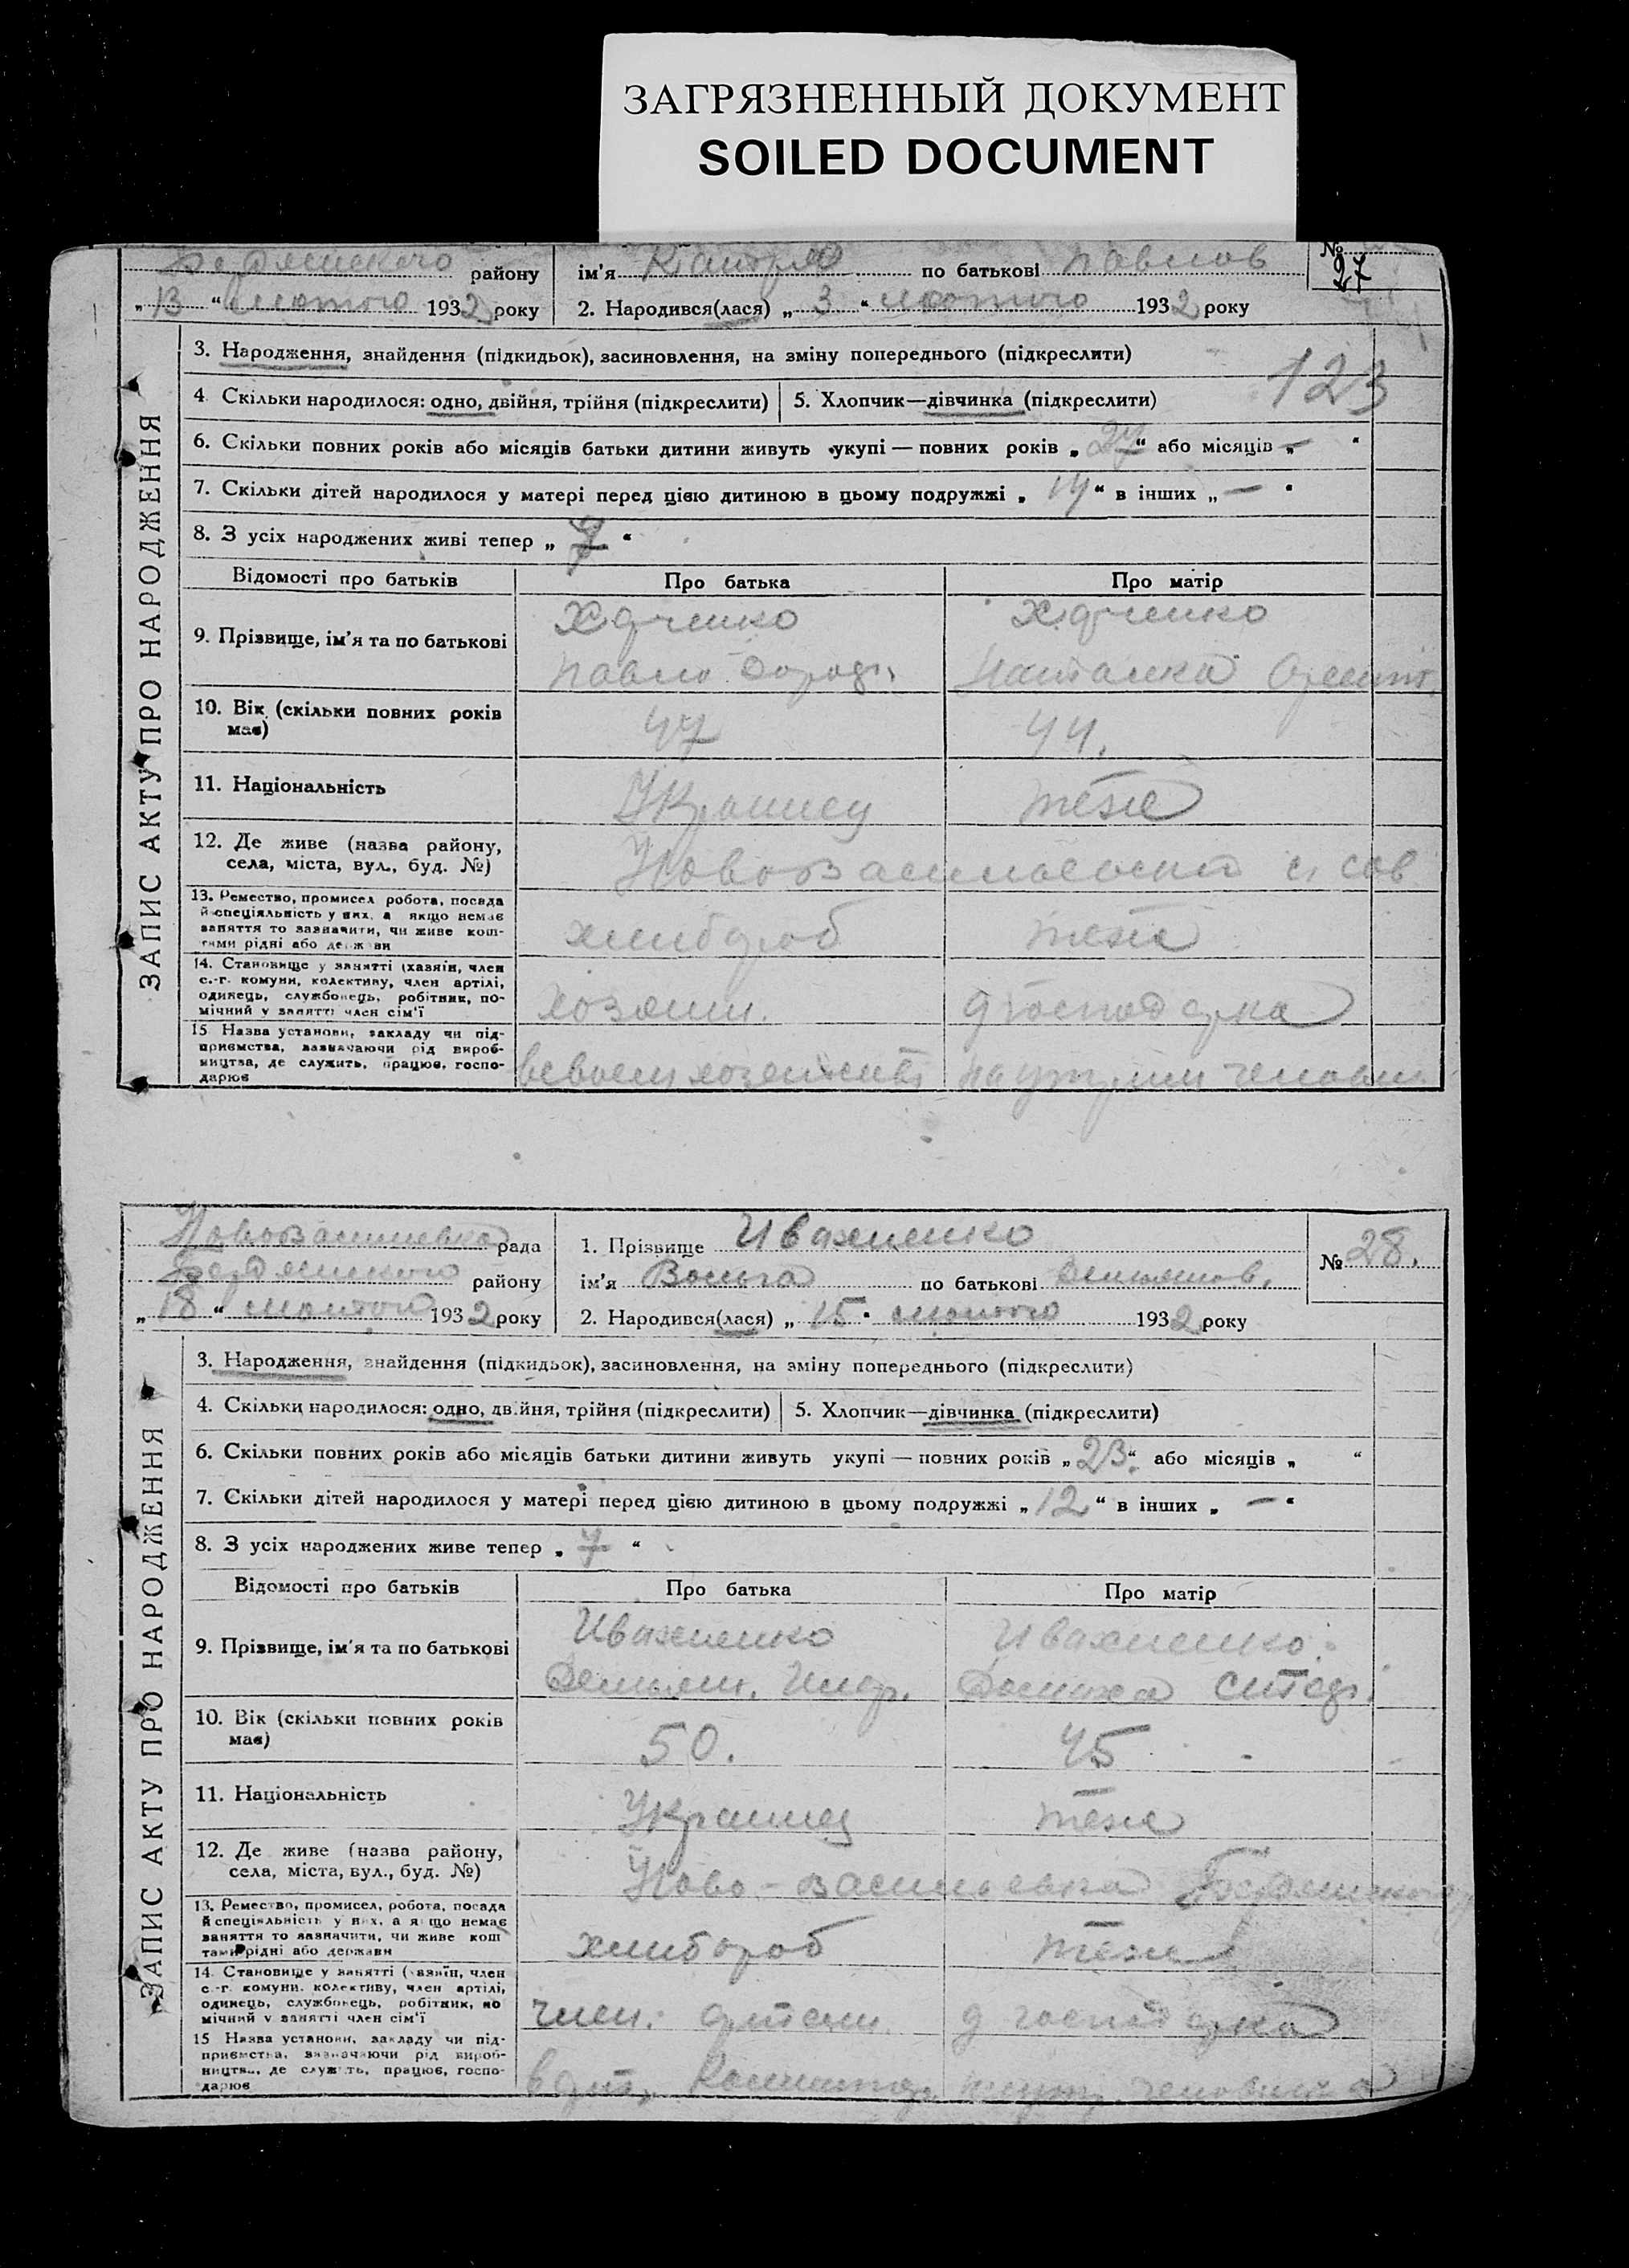 ЗАГРЯЗНЕННЫЙ ДОКУМЕНТ
SOILED DOCUMENT
району
ім'я по батькові Павлов
№ 27
„13“ лютого 1932 року
2. Народився(лася) „3“ лютого 1932 року
123
ЗАПИС АКТУ ПРО НАРОДЖЕННЯ
3. Народження, знайдення (підкидьок), засиновлення, на зміну попереднього (підкреслити)
4. Скільки народилося: одно, двійня, трійня (підкреслити)
5. Хлопчик—дівчинка (підкреслити)
6. Скільки повних років або місяців батьки дитини живуть укупі — повних років „27“ або місяців „—“
7. Скільки дітей народилося у матері перед цією дитиною в цьому подружжі „14“ в інших „—“
8. З усіх народжених живі тепер „7“
Відомості про батьків Про батька Про матір
9. Прізвище, ім'я та по батькові
Павло Наталка
10. Вік (скільки повних років має) 47 44.
11. Національність Украинец теже
12. Де живе (назва району, села, міста, вул., буд. №) с. сов
13. Ремество, промисел робота, посада й спеціяльність у них, а якщо немає заняття то зазначити, чи живе коштами рідні або держави
хлибороб теже
14. Становище у занятті (хазяїн, член с.-г. комуни, колективу, член артілі, одинець, службовець, робітник, помічний у занятті член сім'ї
хозяин. д господарка
15 Назва установи, закладу чи підприємства, зазначаючи рід виробництва, де служить, працює, господарює
рада
1. Прізвище Ивахненко
№ 28.
району
ім'я Вольга по батькові Демьянов.
„18“ лютого 1932 року
2. Народився(лася) „15“ лютого 1932 року
ЗАПИС АКТУ ПРО НАРОДЖЕННЯ
3. Народження, знайдення (підкидьок), засиновлення, на зміну попереднього (підкреслити)
4. Скільки народилося: одно, двійня, трійня (підкреслити)
5. Хлопчик—дівчинка (підкреслити)
6. Скільки повних років або місяців батьки дитини живуть укупі — повних років „23“ або місяців „ “
7. Скільки дітей народилося у матері перед цією дитиною в цьому подружжі „12“ в інших „—“
8. З усіх народжених живе тепер „7“
Відомості про батьків Про батька Про матір
9. Прізвище, ім'я та по батькові
Ивахненко Ивахненко
Демьян.
10. Вік (скільки повних років має) 50. 45
11. Національність Украинец теже
12. Де живе (назва району, села, міста, вул., буд. №) Ново-Васильевка
13. Ремество, промисел, робота, посада й спеціяльність у них, а якщо немає заняття то зазначити, чи живе коштами рідні або держави
хлибороб теже
14. Становище у занятті (хазяїн, член с.-г. комуни. колективу, член артілі, одинець, службовець, робітник, помічний у занятті член сім'ї
член. артели д господарка
15 Назва установи, закладу чи підприємства, зазначаючи рід виробництва, де служить, працює, господарює